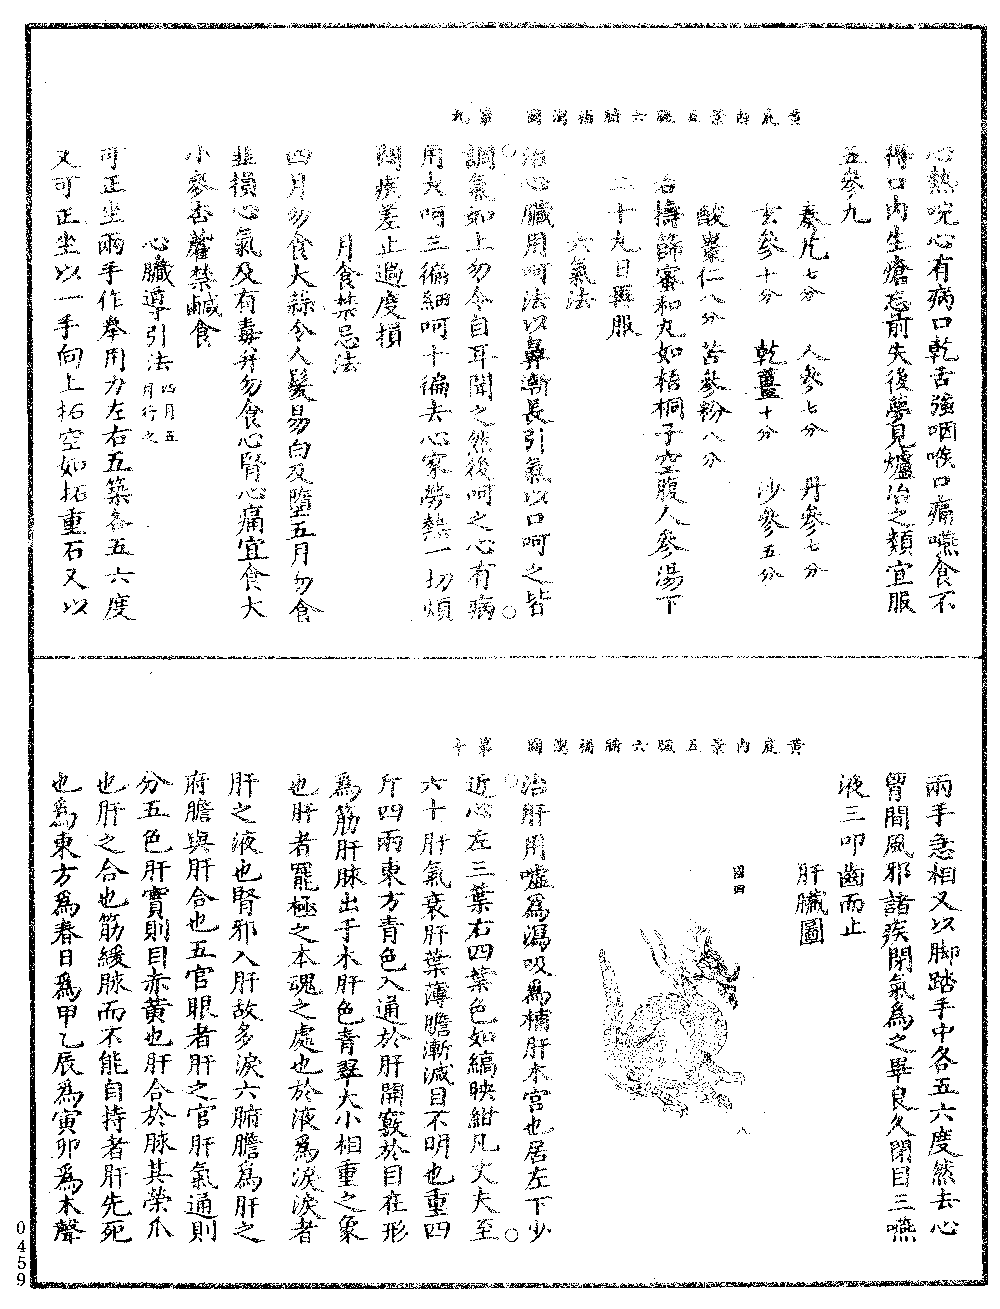 黃庭內景五臟六腑補瀉圖 第九
心熱唍心有病口乾舌強咽喉口痛嚥食不
得口內生瘡忘前失後夢見爐冶之類宜服
五參丸
秦艽七分 人參七分 丹參七分
玄參十分 乾薑十分 沙參五分
酸棗仁八分 苦參粉八分
右擣篩蜜和丸如梧桐子空腹人參湯下
二十丸日再服
六氣法
治心臟用呵法以鼻漸長引氣以口呵之皆
調氣如上勿令自耳聞之然後呵之心有病
用大呵三徧細呵十徧去心家勞熱一切煩
悶疾差止過度損
月食禁忌法
四月勿食大蒜令人髮易白及墮五月勿食
韭損心氣及有毒并勿食心腎心痛宜食大
小麥杏藿禁鹹食
心臟導引法四月五月行之
可正坐兩手作拳用力左右五築各五六度
又可正坐以一手向上拓空如拓重石又以
黃庭內景五臟六腑補瀉圖 第十
兩手急相叉以脚踏手中各五六度然去心
胷間風邪諸疾閉氣為之畢良久閉目三嚥
液三叩齒而止
肝臟圖
圖四
治肝用噓爲瀉吸爲補肝木宮也居左下少
近心左三葉右四葉色如縞映紺凡丈夫至
六十肝氣衰肝葉薄膽漸減目不明也重四
斤四兩東方青色入通於肝開竅於目在形
爲筋肝脉出于木肝色青翠大小相重之象
也肝者罷極之本魂之處也於液爲淚淚者
肝之液也腎邪入肝故多淚六腑膽爲肝之
府膽與肝合也五官眼者肝之官肝氣通則
分五色肝實則目赤黃也肝合於脉其榮爪
也肝之合也筋緩脉而不能自持者肝先死
也爲東方爲春日爲甲乙辰爲寅卯爲木聲
0459